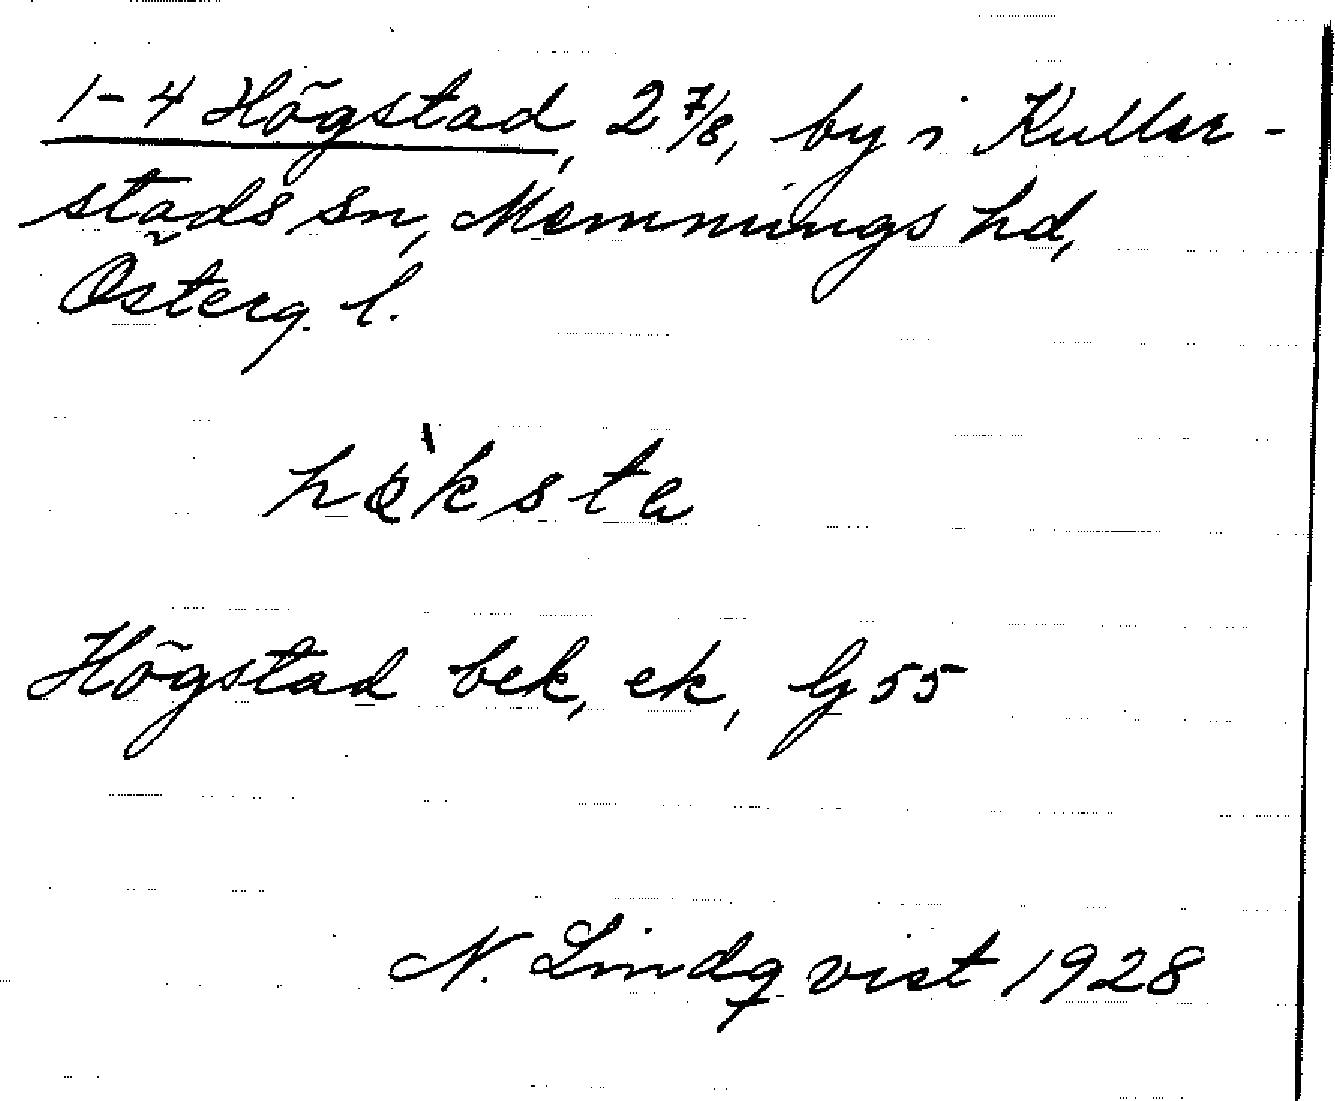 1-4 Högstad, 2 7/8, by i Kuller-
stads sn, Memmings hd,
Österg. l.
Högstad bek, ek, G 55
N. Lindqvist 1928